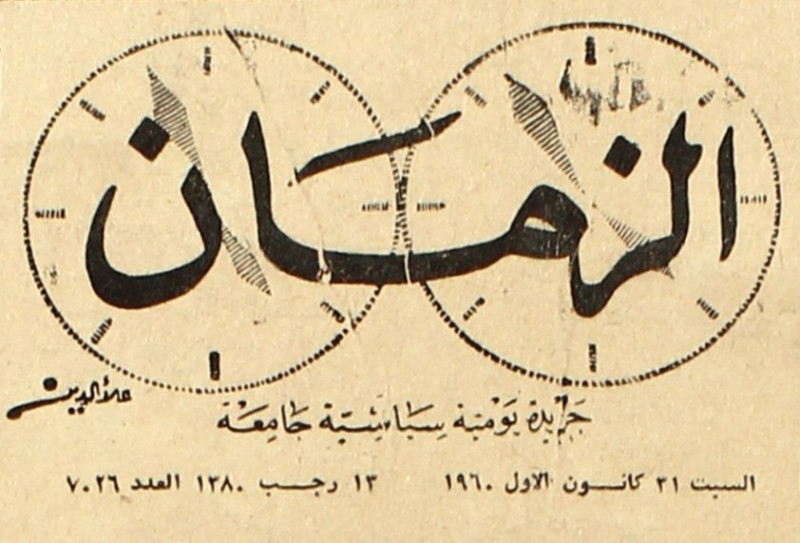 الزمان
علاء الدين
جريدة يومية سياسية جامعة
السبت ٣١ كانون الاول ١٩٦٠ ١٣ رجب ١٣٨٠ العدد ٧٠٢٦